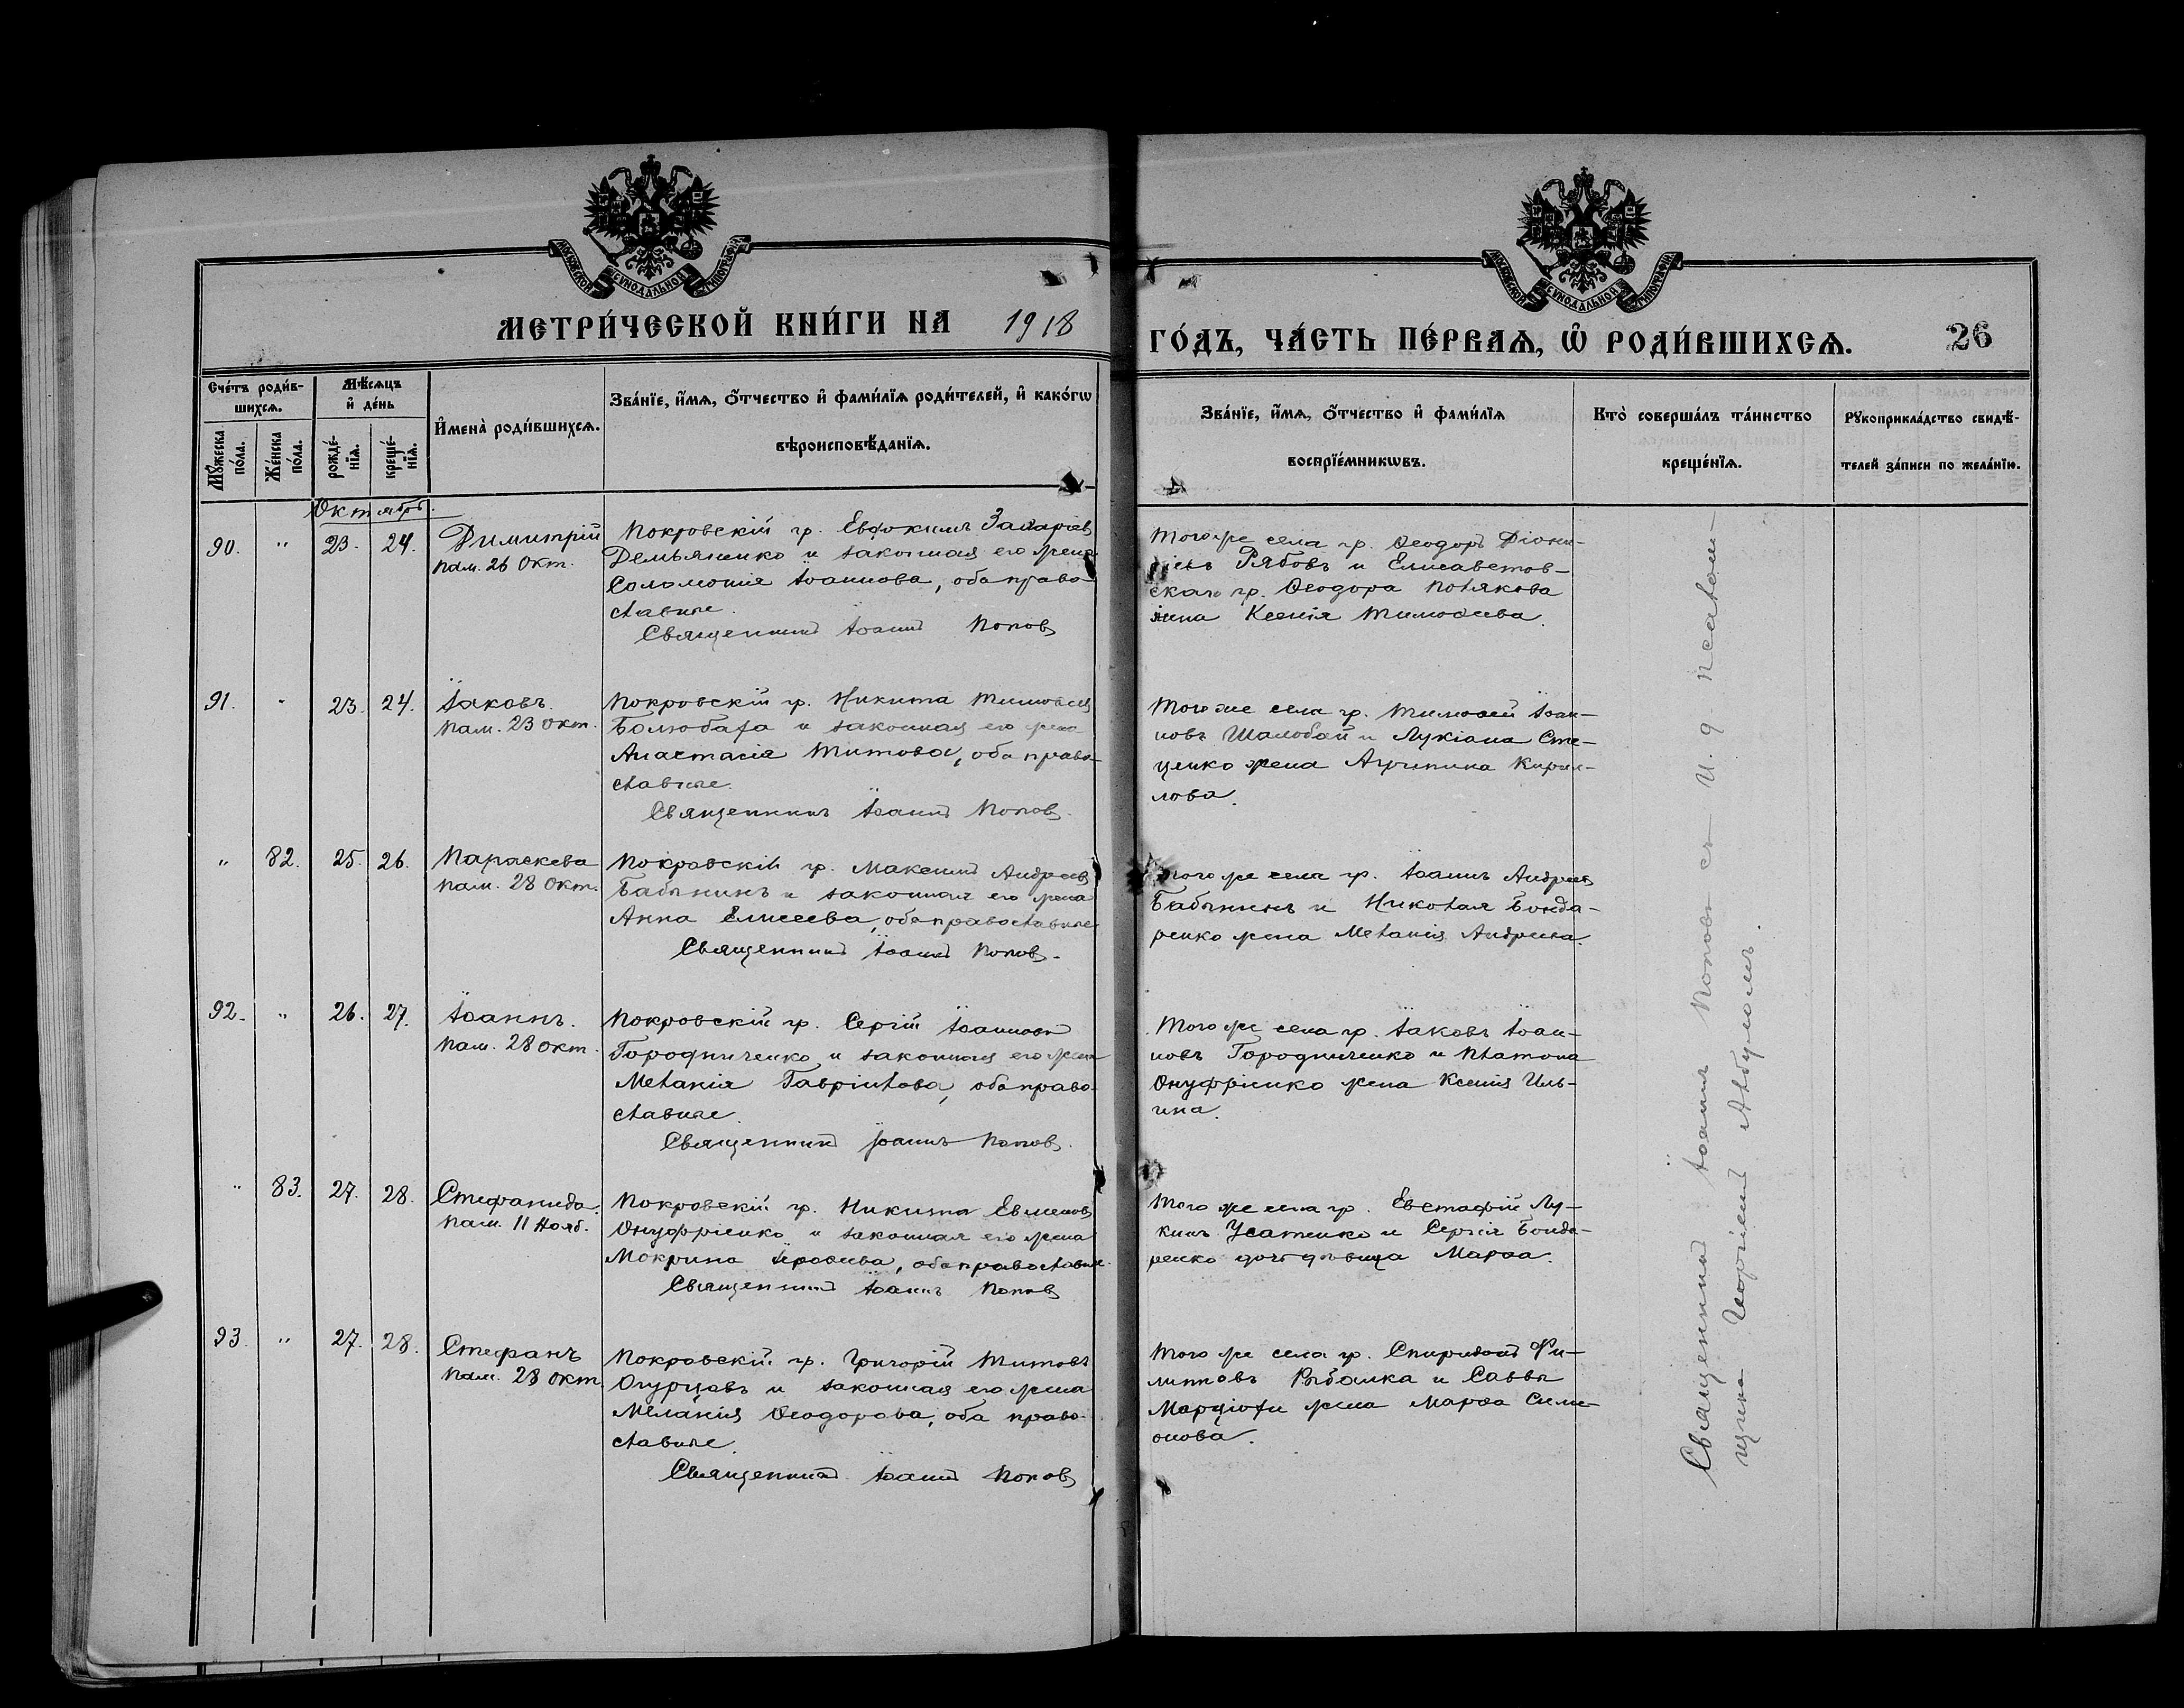 МОСКОВСКОЙ СѴНОДАЛЬНОЙ ТИПОГРАФІИ
МОСКОВСКОЙ СѴНОДАЛЬНОЙ ТИПОГРАФІИ
МЕТРИ́ЧЕСКОЙ КНИ́ГИ НА 1918
ГО́ДЪ, ЧА́СТЬ ПЕ́РВАѦ, Ѡ҆ РОДИ́ВШИХСѦ. 26
Сче́тъ роди́в-
шихсѧ.
Мѣ́сѧцъ
и҆ де́нь
И҆мена̀ роди́вшихсѧ.
Зва́нїе, и҆́мѧ, ѻ҆́тчество и҆ фами́лїѧ роди́телей, и҆ како́гѡ
вѣроисповѣ́данїѧ.
Мꙋ́жеска
по́ла.
Же́нска
по́ла.
рожде́-
нїѧ.
креще́-
нїѧ.
Зва́нїе, и҆́мѧ, ѻ҆́тчество и҆ фами́лїѧ
воспрїе́мникѡвъ.
Кто̀ соверша́лъ та́инство
креще́нїѧ.
Рꙋкоприкла́дство свидѣ́-
телей за́писи по жела́нїю.
Октябрь.
90. " 23. 24. Димитрій
пам. 26 Окт.
Покровскій гр. Евдокимъ Захаріев
Демьяненко и законная его жена
Соломонія Іоаннова, оба право-
славные.
Священник Іоанн Попов
Того же села гр. Ѳеодоръ Діони-
сіевъ Рябовъ и Елисаветов-
скаго гр. Ѳеодора Полякова
жена Ксенія Тимоѳеева.
91. " 23. 24. Іаковъ.
пам. 23 окт.
Покровскій гр. Никита Тимоѳеев
и законная его жена
Анастасія Титова, оба право-
славные.
Священникъ Іоанн Попов.
Того же села гр. Тимоѳей Іоан-
новъ Шалобай и Лукіана Сте-
ценко жена Агрипина Кирил-
лова.
" 82. 25. 26. Параскева
пам. 28 окт.
Покровскій гр. Максим Андреев
Бабынинъ и законная его жена
Анна Елисеева, оба православные
Священник Іоанн Попов.
Того же села гр. Іоаннъ Андреев
Бабынинъ и Николая Бонда-
ренко жена Меланія Андреева.
92. " 26. 27. Іоаннъ.
пам. 28 окт.
Покровскій гр. Сергій Іоаннов
Городниченко и законная его жена
Меланія Гавріилова, оба право-
славные.
Священник Іоаннъ Попов.
Того же села гр. Іаковъ Іоан-
новъ Городниченко и Платона
Онуфріенко жена Ксенія Иль-
ина.
" 83. 27. 28. Стефанида.
пам. 11 Нояб.
Покровскій гр. Никита Евменов
Онуфріенко и законная его жена
Мокрина, оба православные.
Священник Іоаннъ Попов
Того же села гр. Евстафій Лу-
кинъ Усатенко и Сергія Бонда-
ренко дочь дѣвица Марѳа.
93. " 27. 28. Стефанъ
пам. 28 окт.
Покровскій гр. Григорій Титовъ
Огурцовъ и законная его жена
Меланія Ѳеодорова, оба право-
славные.
Священник Іоанн Попов
Того же села гр. Спиридон Фи-
липповъ Рыбалка и Саввы
жена Марѳа Симе-
онова.
Священник Іоанн Попов съ и. д. псалом-
щика Георгіем